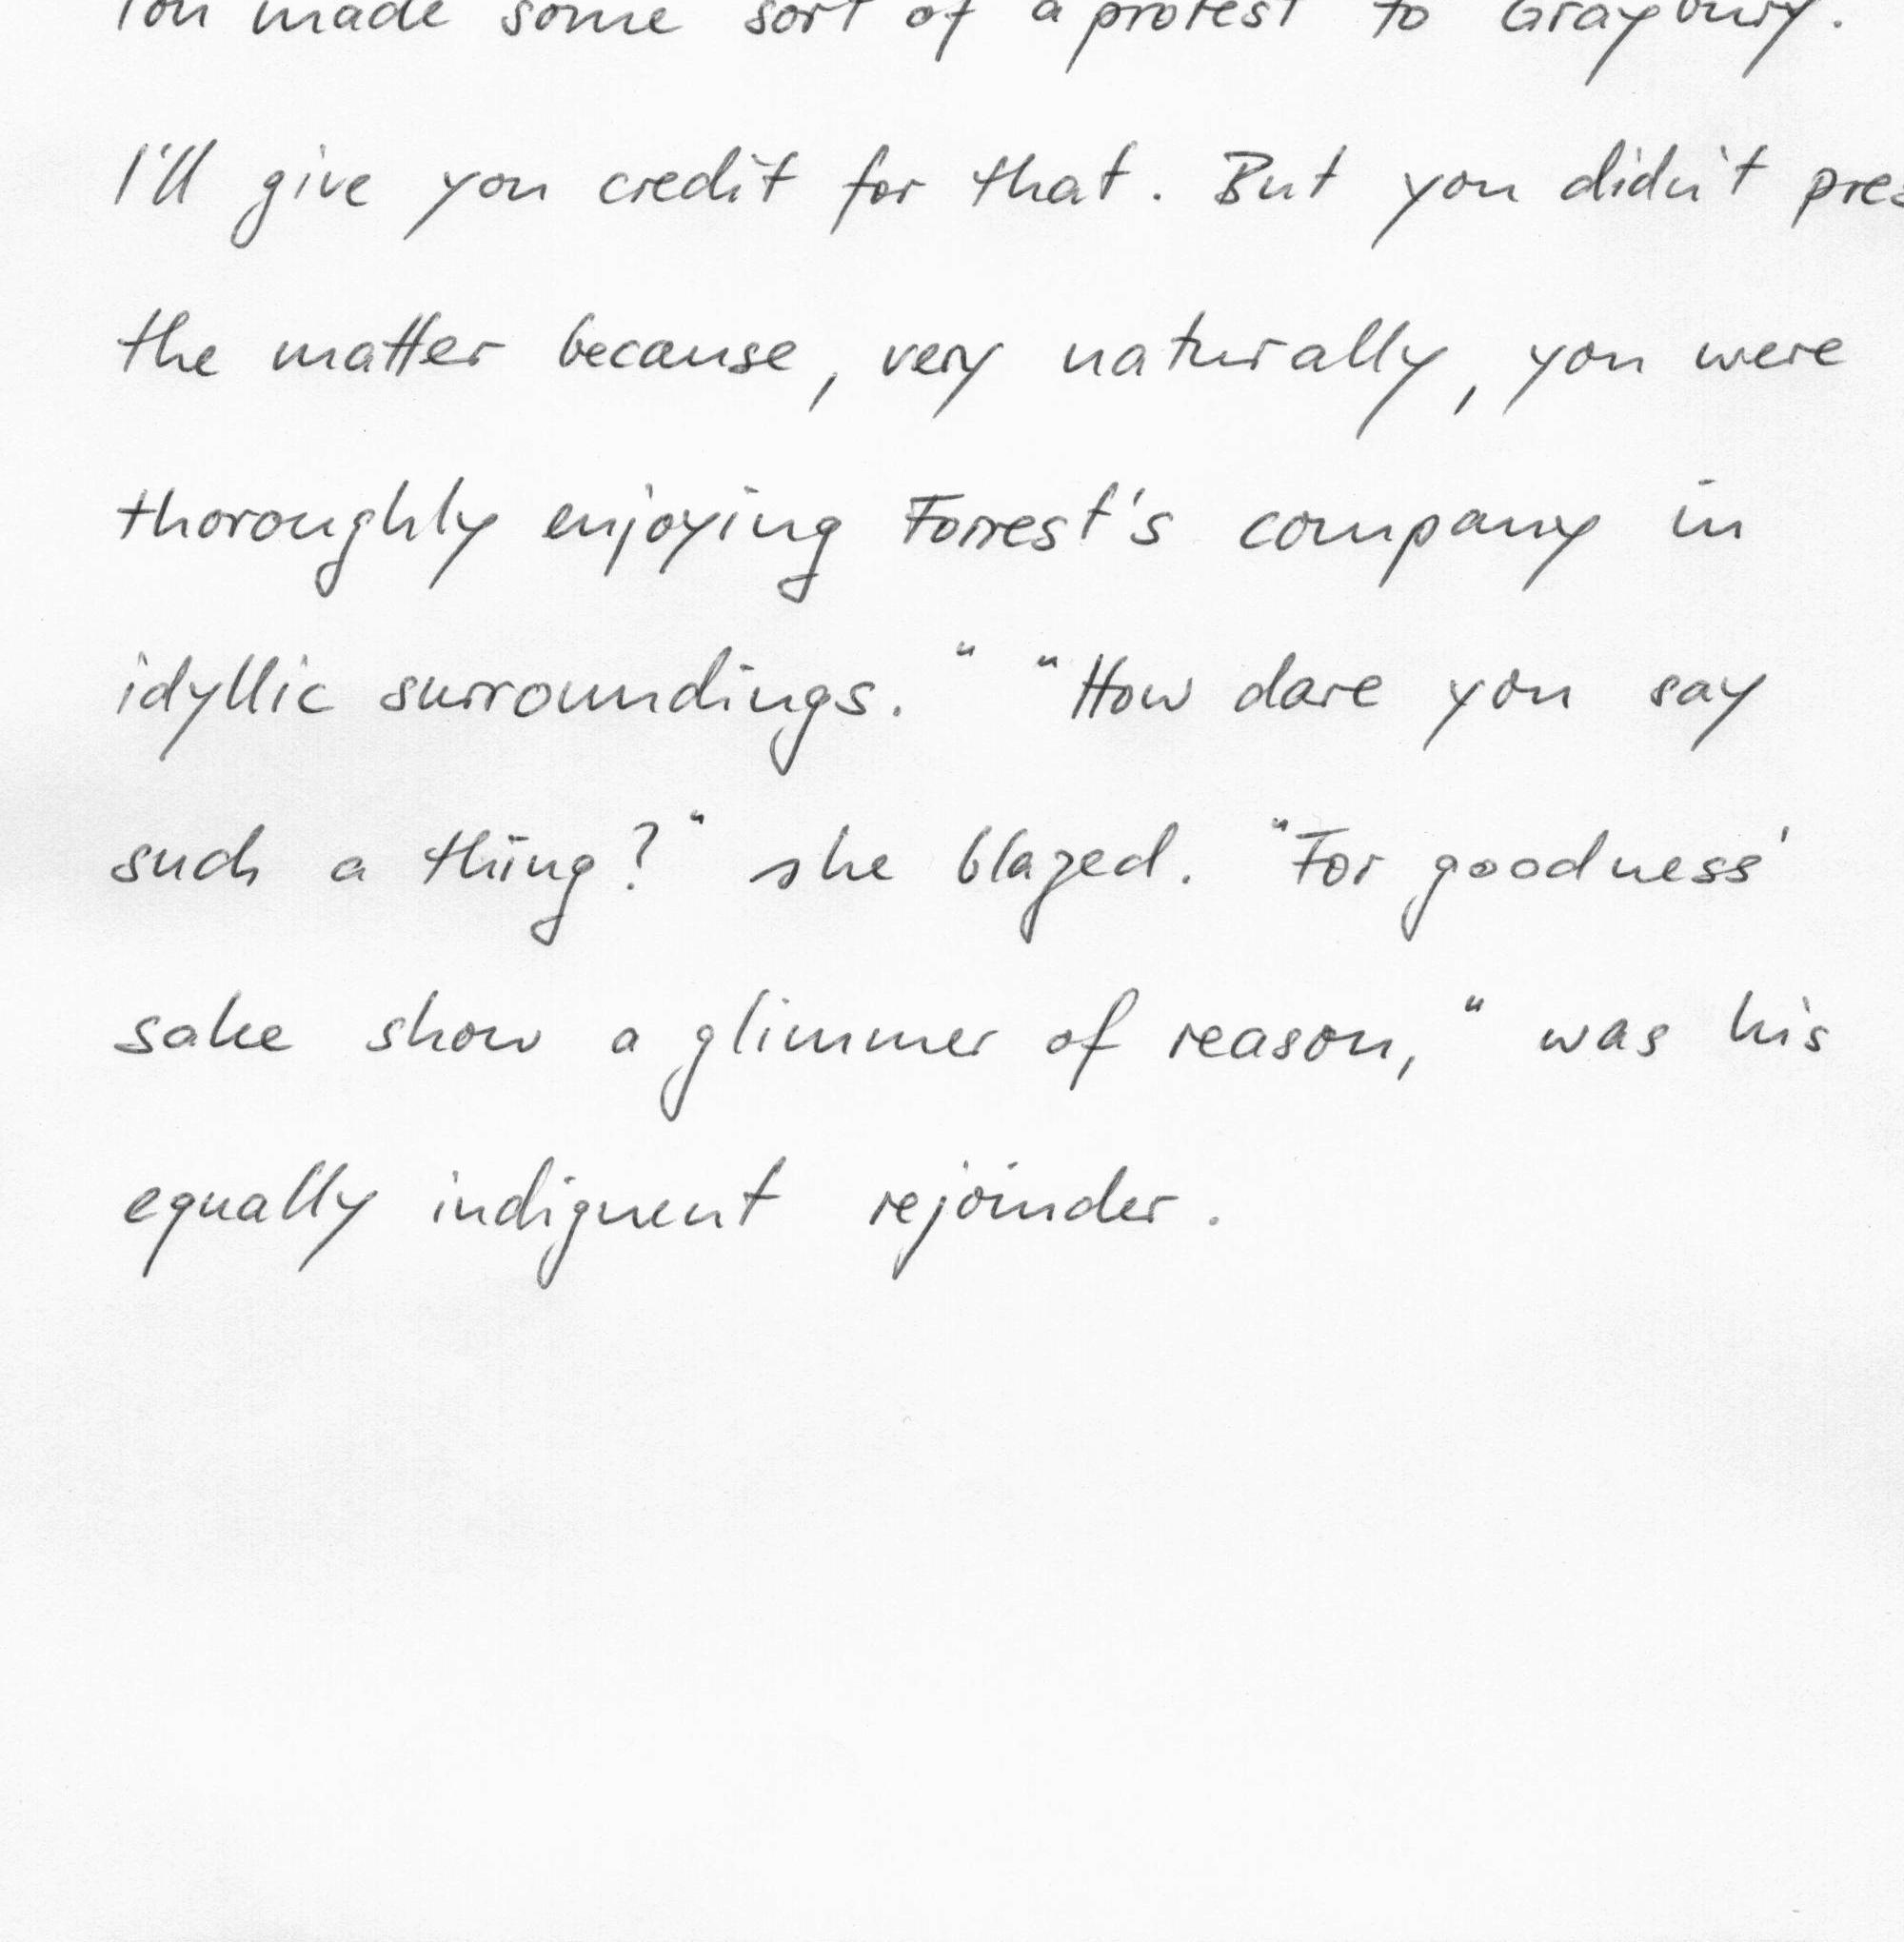 You made some sort of a protest to Graybury.
I'll give you credit for that. But you didn't pres
the matter because, very naturally, you were
thoroughly enjoying Forrest's company in
idyllic surroundings." "How dare you say
such a thing?" she blazed. "For goodness'
sake show a glimmer of reason," was his
equally indignent rejoinder.